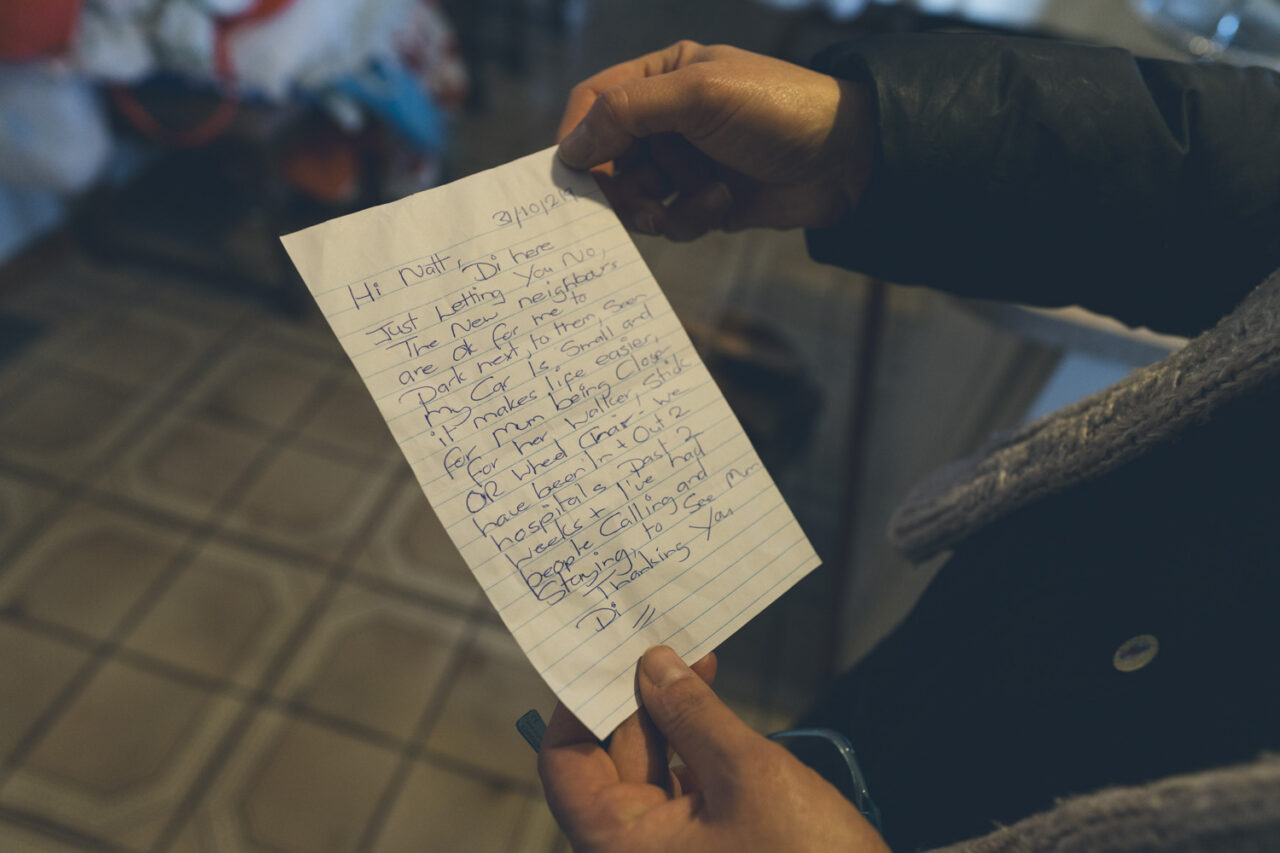 31/10/219
Hi Natt, Di here
Just Letting You No,
The New neighbours
are ok for me to
Park next, to them, Seen
my Car Is. Small and
it makes life easier,
for mum being Closer
for her Walker, Stick
OR Wheel Chair - we
have been In + Out 2
hospitals past 2
weeks + I've had
people Calling and
Staying, to See Mum
Thanking You
Di